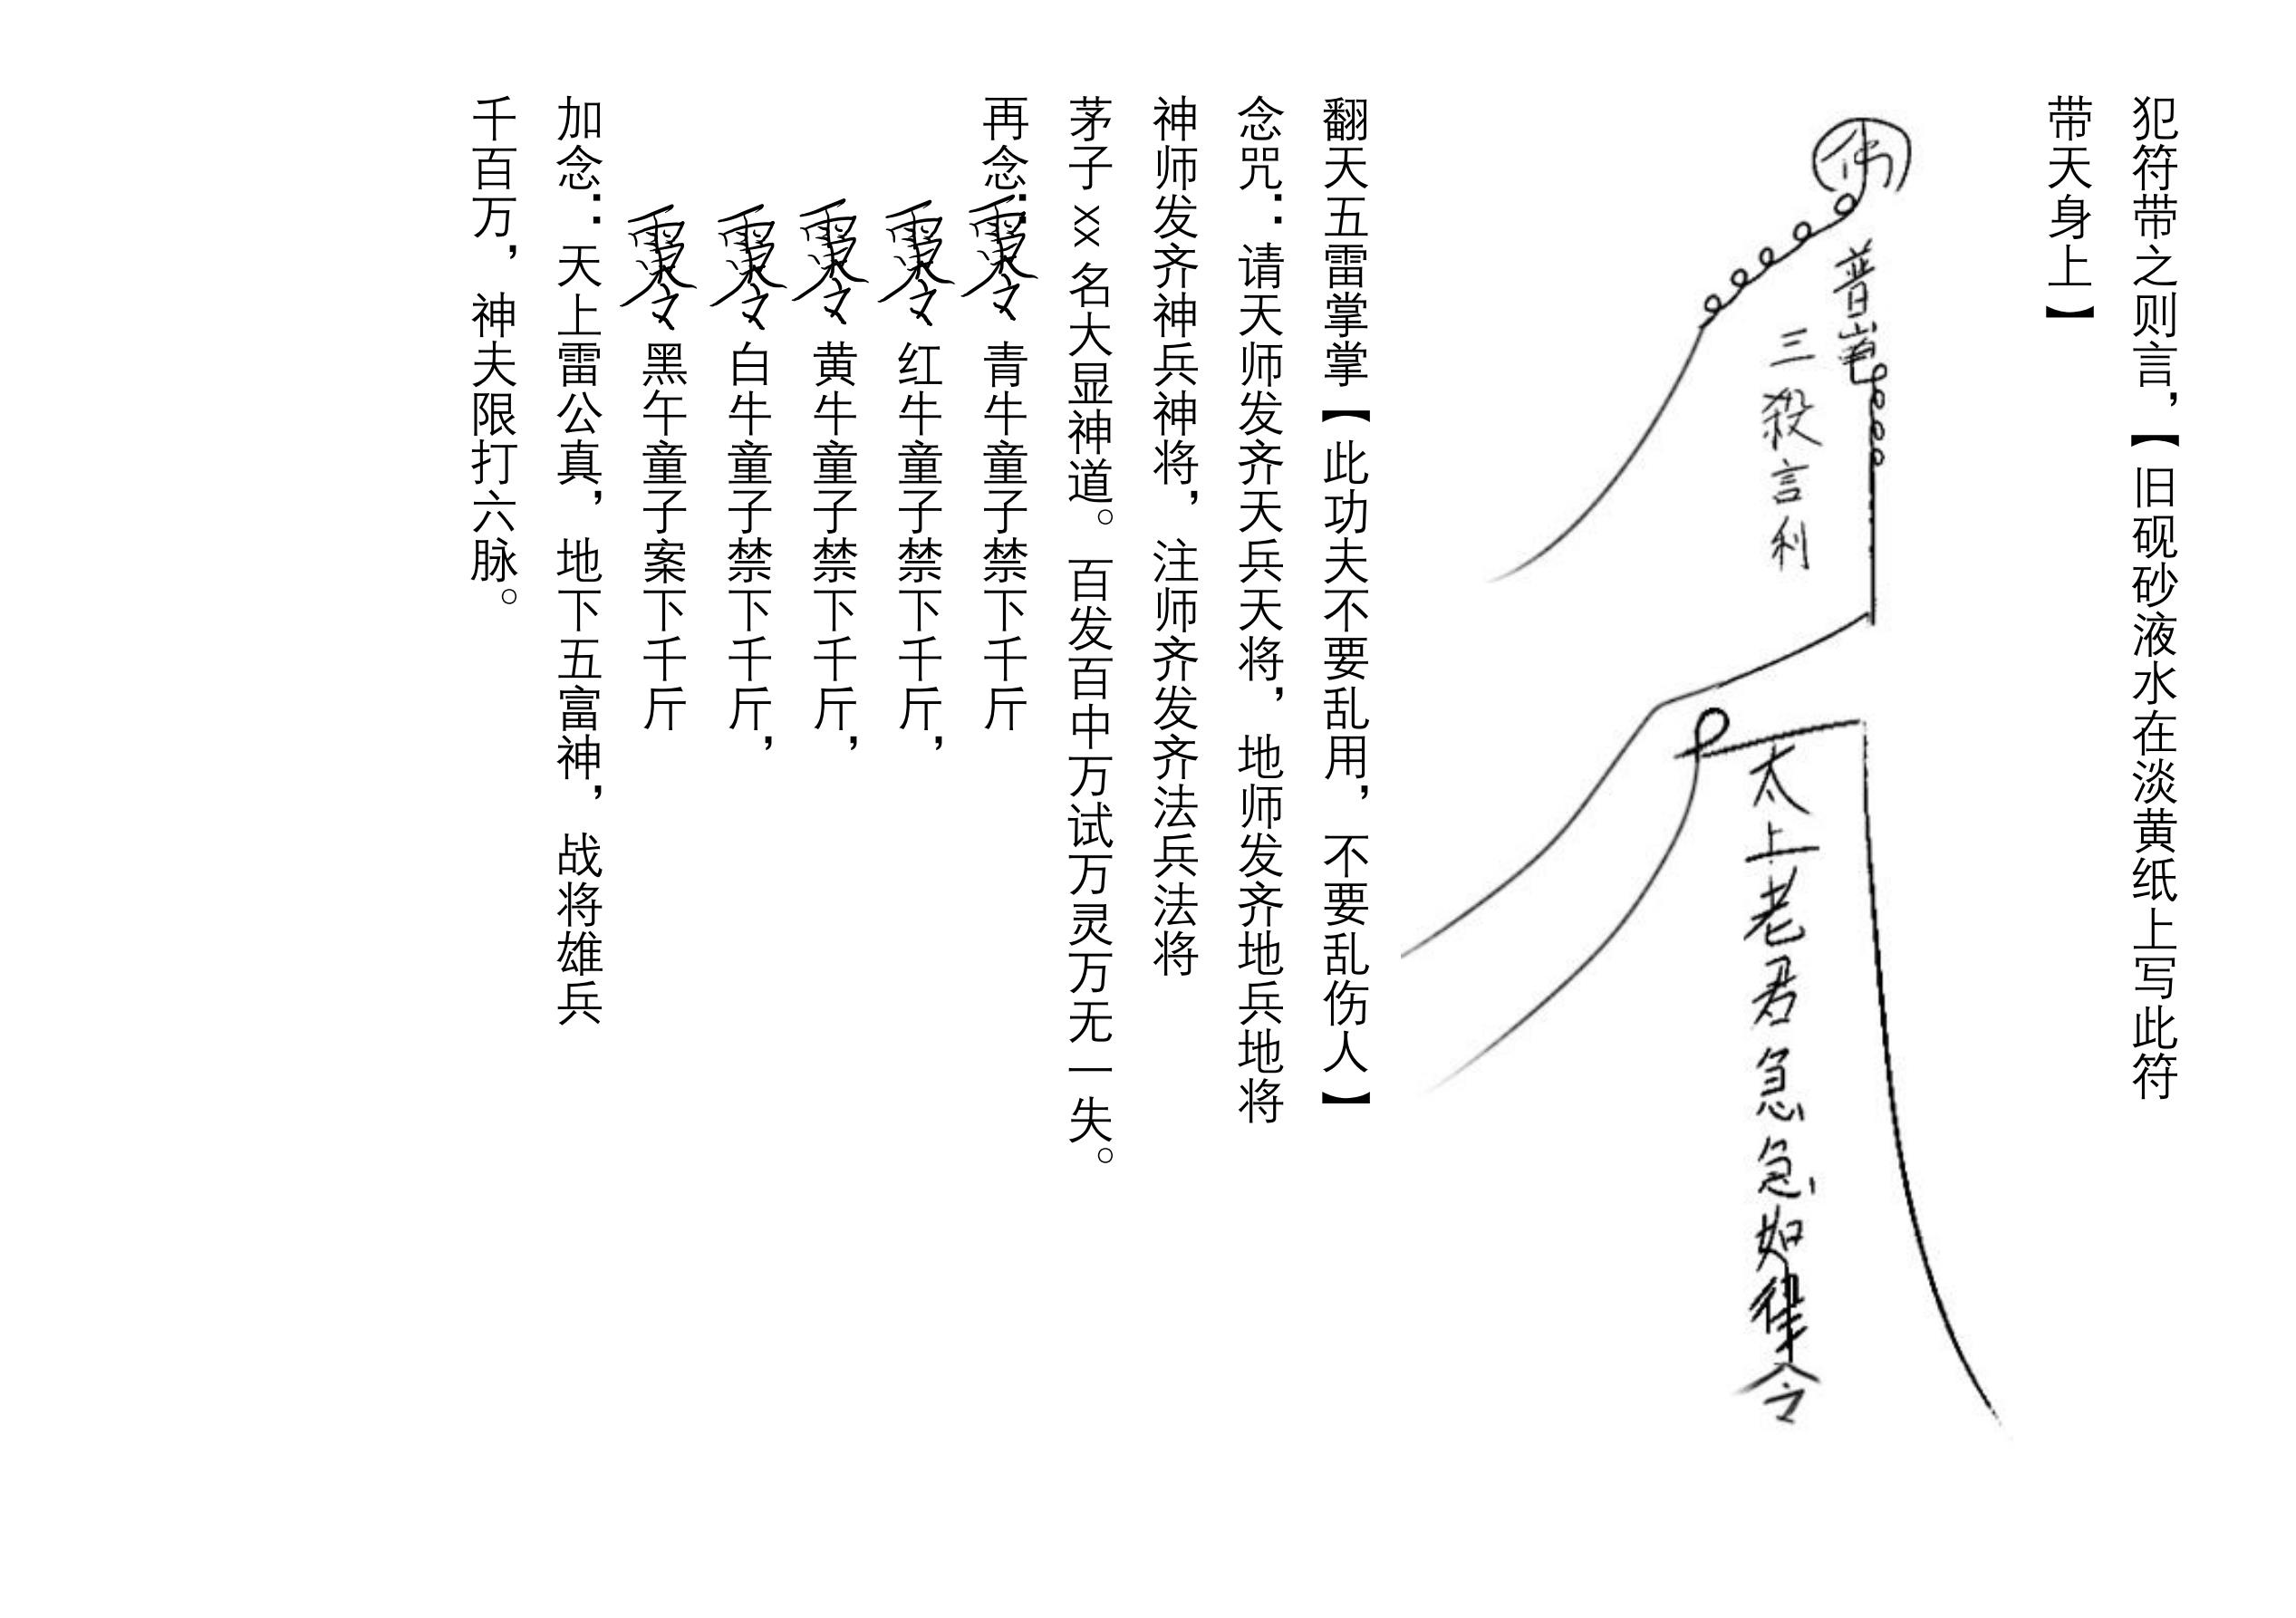 犯符带之则言，【旧砚砂液水在淡黄纸上写此符
带天身上】
佛
普
三殺言利
太上老君急急如律令
翻天五雷掌掌【此功夫不要乱用，不要乱伤人】
念咒：请天师发齐天兵天将，地师发齐地兵地将
神师发齐神兵神将，注师齐发齐法兵法将
茅子××名大显神道。百发百中万试万灵万无一失。
再念：青牛童子禁下千斤
红牛童子禁下千斤，
黄牛童子禁下千斤，
白牛童子禁下千斤，
黑午童子案下千斤
加念：天上雷公真，地下五富神，战将雄兵
千百万，神夫限打六脉。